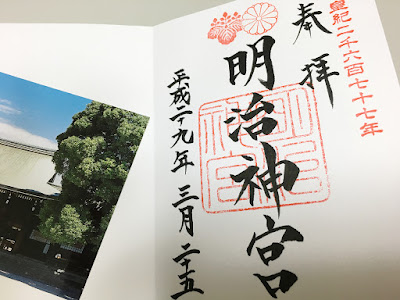 皇紀二千六百七十七年
奉拝
明治神宮
平成二十九年 三月二十五